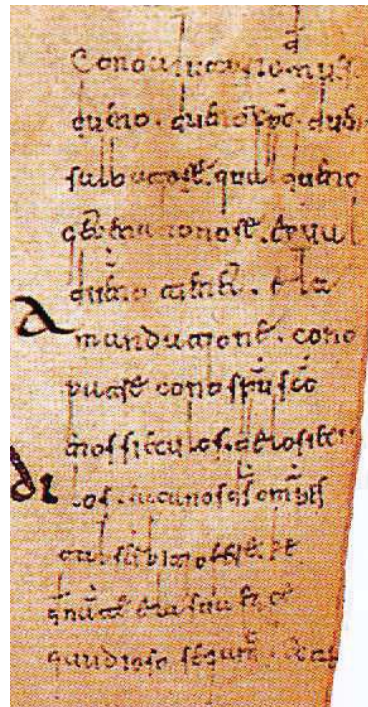 Cono aiutorio de nuestro
dueno. dueno xpo. dueno
salbatore. qual dueno
get ena honore. e qual
duenno tienet. ela
mandatione. cono
patre cono spu sco
enos sieculos. delosiecu
los. facanos ds omps
tal serbitio fere. ke
denante ela sua face
gaudioso segamus.